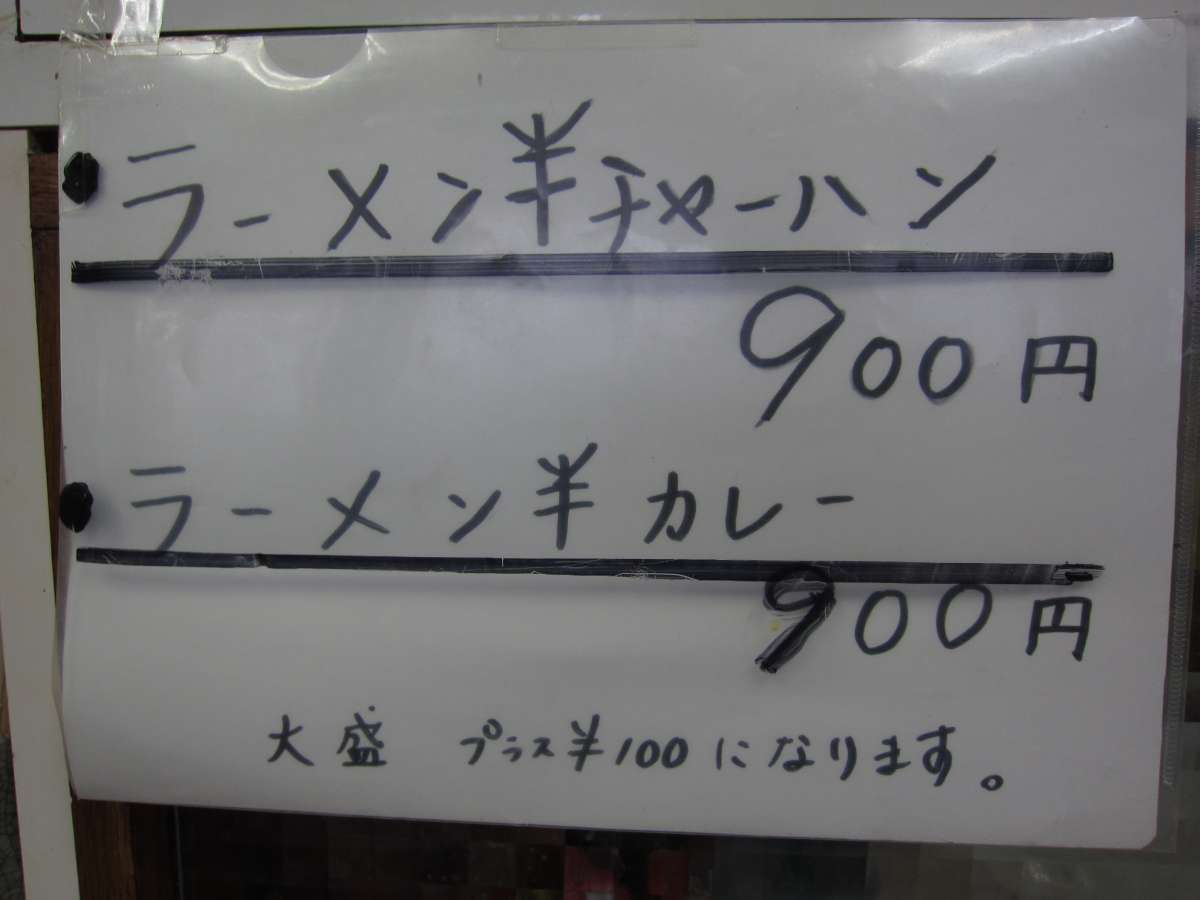 ラーメン半チャーハン
900円
ラーメン半カレー
900円
大盛 プラス¥100になります。